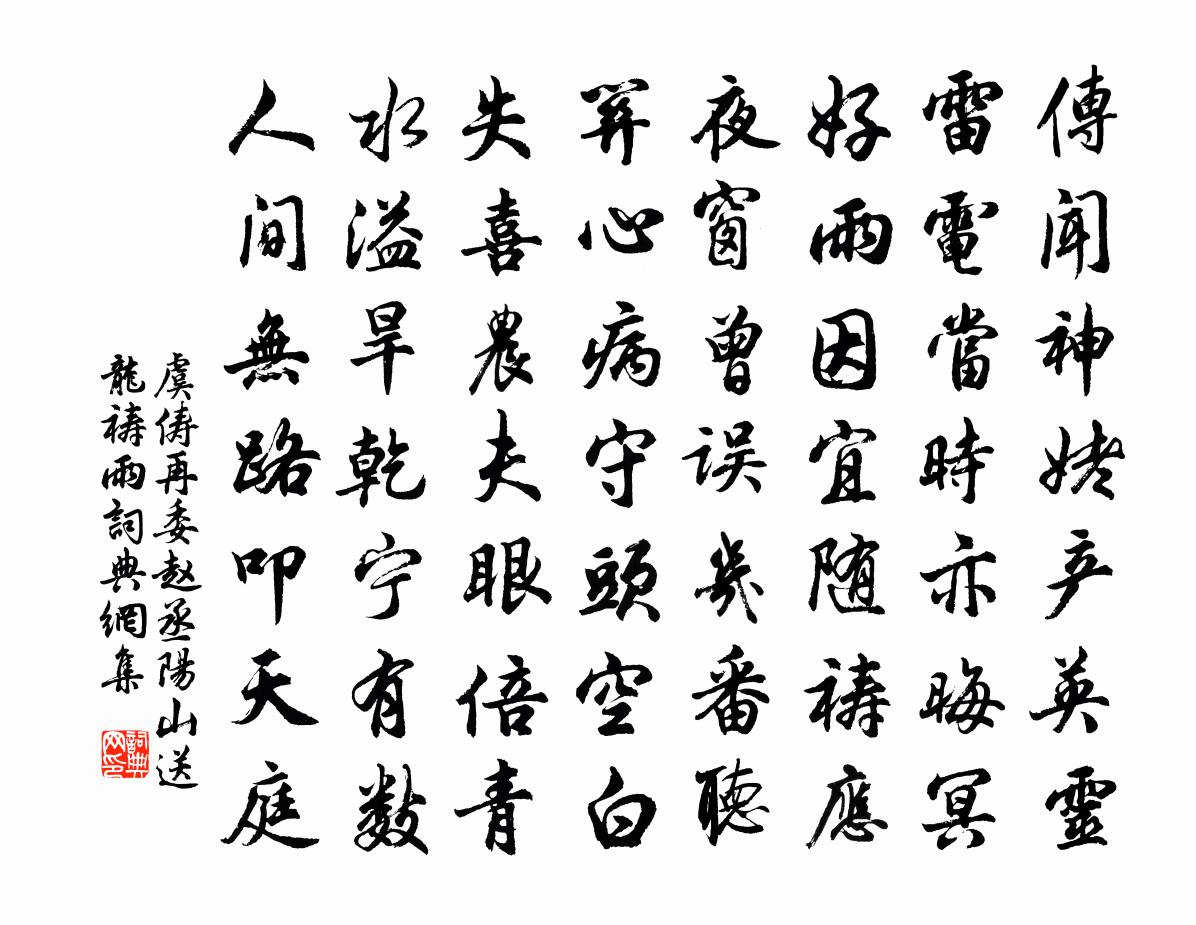 傳聞神姥产英靈
雷電當時亦晦冥
好雨因宜随祷應
夜窗曾误幾番聽
筭心病守頭空白
失喜農夫眼倍青
水溢旱乾宁有數
人間無路叩天庭
虞俦再委赵丞陽山送
龍祷雨詞典網集
詞典网印